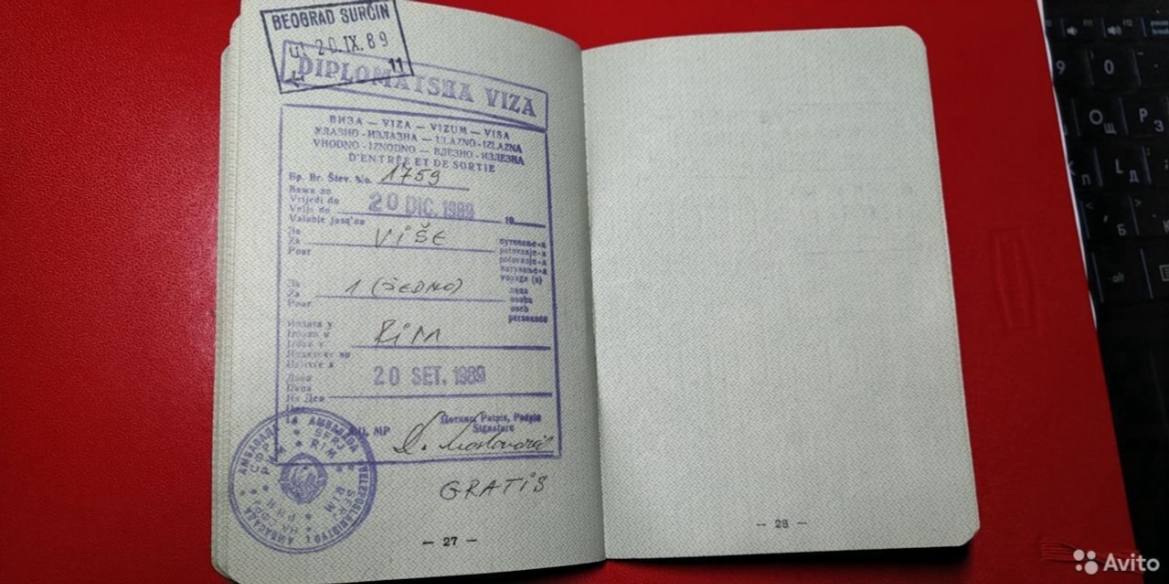 BEOGRAD SURČIN
UL 20.IX.89
11
DIPLOMATSKA VIZA
ВИЗА — VIZA — VIZUM — VISA
УЛАЗНО-ИЗЛАЗНА — ULAZNO-IZLAZNA
VHODNO-IZHODNO — ВЛЕЗНО-ИЗЛЕЗНА
D'ENTRÉE ET DE SORTIE
Бр. Br. Štev. No. 1759
Важи до
Vrijedi do
Velja do 20 DIC. 1989 19
Valable jusqu'au
За
Za VIŠE
Pour
путовање-а
putovanje-a
potovanje-a
патување-а
voyage (s)
За
Za 1 (JEDNO)
Pour
лица
osoba
oseb
personnes
Издата у
Izdana u RIM
Izdan v
Издадена во
Délivrée à
Дана
Dana 20 SET. 1989
На Ден
Потпис, Potpis, Podpis
MP Signature
GRATIS
AMBASADA SFRJ RIM
— 27 —
— 28 —
9 0
Щ З
Л Д
Б
Avito